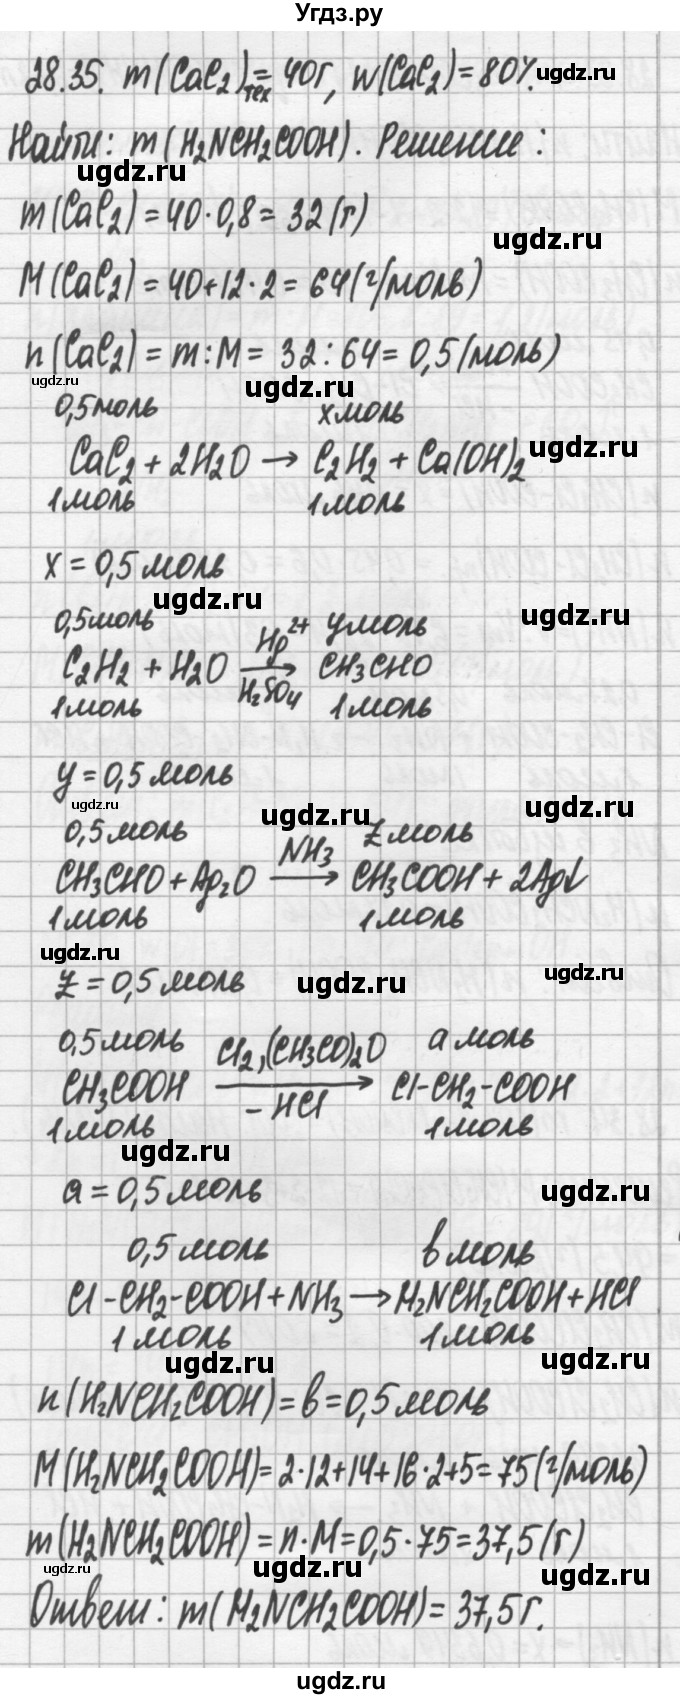 Угдз.ру
28.35. m(CaC₂)тех = 40г, w(CaC₂) = 80%.
ugdz.ru
Найти: m(H₂NCH₂COOH). Решение:
ugdz.ru
m(CaC₂) = 40·0,8 = 32(г)
ugdz.ru
M(CaC₂) = 40+12·2 = 64(г/моль)
n(CaC₂) = m:M = 32:64 = 0,5(моль)
ugdz.ru ugdz.ru
0,5моль x моль
ugdz.ru
CaC₂ + 2H₂O → C₂H₂ + Ca(OH)₂
1моль 1моль
x = 0,5моль
ugdz.ru ugdz.ru
0,5моль Hg²⁺ y моль
C₂H₂ + H₂O → CH₃CHO
H₂SO₄
1моль 1моль
y = 0,5моль
ugdz.ru ugdz.ru ugdz.ru
0,5моль NH₃ z моль
CH₃CHO + Ag₂O → CH₃COOH + 2Ag↓
1моль 1моль
ugdz.ru
z = 0,5моль
ugdz.ru ugdz.ru
0,5моль Cl₂,(CH₃CO)₂O a моль
CH₃COOH → Cl-CH₂-COOH
-HCl
1моль 1моль
ugdz.ru
a = 0,5моль
ugdz.ru
0,5моль в моль
Cl-CH₂-COOH + NH₃ → H₂NCH₂COOH + HCl
1моль 1моль
ugdz.ru ugdz.ru
n(H₂NCH₂COOH) = в = 0,5моль
M(H₂NCH₂COOH) = 2·12+14+16·2+5 = 75(г/моль)
m(H₂NCH₂COOH) = n·M = 0,5·75 = 37,5(г)
ugdz.ru ugdz.ru ugdz.ru
Ответ: m(H₂NCH₂COOH) = 37,5г.
ugdz.ru